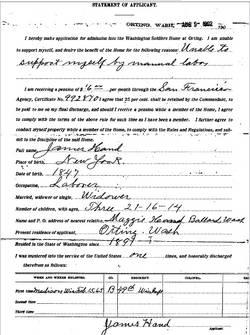 STATEMENT OF APPLICANT.
ORTING, WASH., 1902
I hereby make application for admission into the Washington Soldiers Home at Orting. I am unable
to support myself, and desire the benefit of the Home for the following reasons: Unable to
support myself by manual labor
I am receiving a pension of $6 per month through the San Francisco
Agency, Certificate No. 992870 I agree that 25 per cent. shall be retained by the Commandant, to
be paid to me on my final Discharge, and should I receive a pension while a member of the Home, I agree
to comply with the terms of the above rule for such time as I have been a member. I further agree to
conduct myself properly while a member of the Home, to comply with the Rules and Regulations, and sub-
mit to the Discipline of the said Home.
Full name James Hand
Place of birth New York
Date of birth 1847
Occupation, Laborer
Married, single, or widower, Widower
Number of children, with ages, Three 21-16-14
Name and P. O. address of nearest relative, Maggie Ballard Wash
Present residence of applicant, Orting Wash
Resided in the State of Washington since 1897
I was mustered into the service of the United States one times, and honorably discharged
therefrom as follows:
WHEN AND WHERE ENROLLED. CO. REGIMENT. COLONEL.
First time Madison 1865 B 49th
Second time
Third time
James Hand